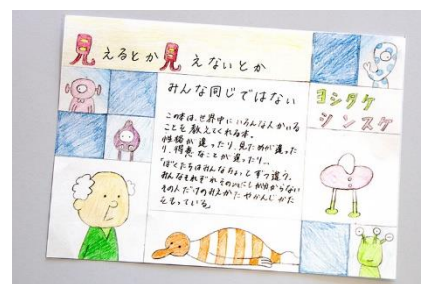 見えるとか見えないとか
みんな同じではない
この本は、世界中にいろんな人がいる
ことを教えてくれる本。
性格が違ったり、見ためが違った
り、得意なことが違ったり、、
「ぼくたちはみんなちょっとずつ違う。
みんなそれぞれその人にしか分からない
その人だけのみえかたやかんじかた
をもっている。
ヨシタケ
シンスケ